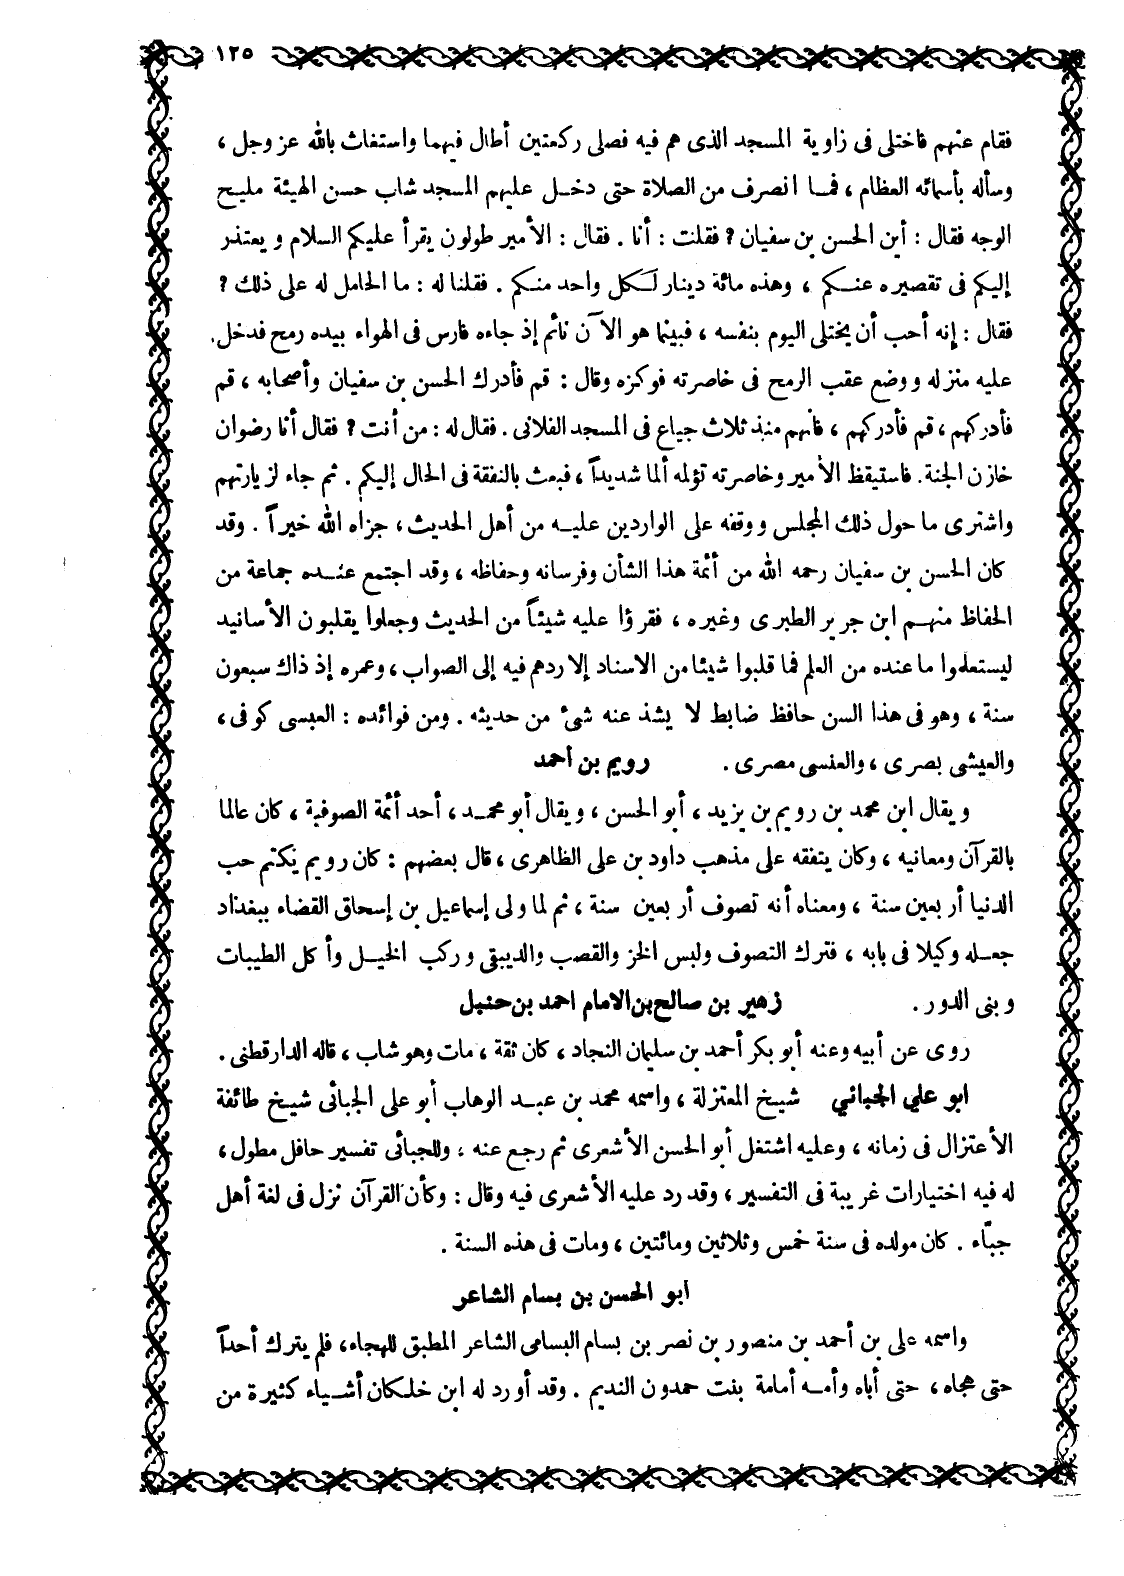 ١٢٥
فقام عنهم فاختلى فى زاوية المسجد الذى هم فيه فصلى ركعتين أطال فيهما واستغاث بالله عز وجل ،
وسأله بأسمائه العظام ، فمـا انصرف من الصلاة حتى دخـل عليهم المسجد شاب حسن الهيئة مليـح
الوجه فقال : أين الحسن بن سفيان ؟ فقلت : أنا . فقال : الأمير طولون يقرأ عليكم السلام ويعتذر
إليكم فى تقصيره عنـكم ، وهذه مائة دينار لـكل واحد منكم . فقلنا له : ما الحامل له على ذلك ؟
فقال : إنه أحب أن يختلى اليوم بنفسه ، فبينما هو الآن نائم إذ جاءه فارس فى الهواء بيده رمح فدخل
عليه منزله ووضع عقب الرمح فى خاصرته فوكزه وقال : قم فأدرك الحسن بن سفيان وأصحابه ، قم
فأدركهم ، قم فأدركهم ، فانهم منذ ثلاث جياع فى المسجد الفلانى . فقال له : من أنت ؟ فقال أنا رضوان
خازن الجنة . فاستيقظ الأمير وخاصرته تؤلمه ألما شديداً ، فبعث بالنفقة فى الحال إليكم . ثم جاء لزيارتهم
واشترى ما حول ذلك المجلس ووقفه على الواردين عليـه من أهل الحديث ، جزاه الله خيراً . وقد
كان الحسن بن سفيان رحمه الله من أئمة هذا الشأن وفرسانه وحفاظه ، وقد اجتمع عنـده جماعة من
الحفاظ منهـم ابن جرير الطبرى وغيره ، فقرؤا عليه شيئاً من الحديث وجعلوا يقلبون الأسانيد
ليستعلموا ما عنده من العلم فما قلبوا شيئا من الاسناد إلا ردهم فيه إلى الصواب ، وعمره إذ ذاك سبعون
سنة ، وهو فى هذا السن حافظ ضابط لا يشذ عنه شئ من حديثه . ومن فوائده : العبسى كوفى ،
والعيشى بصرى ، والعنسى مصرى . رويم بن أحمد
ويقال ابن محمد بن رويم بن يزيد ، أبو الحسن ، ويقال أبو محمـد ، أحد أئمة الصوفية ، كان عالما
بالقرآن ومعانيه ، وكان يتفقه على مذهب داود بن على الظاهرى ، قال بعضهم : كان رويم يكتم حب
الدنيا أربعين سنة ، ومعناه أنه تصوف أربعين سنة ، ثم لما ولى إسماعيل بن إسحاق القضاء ببغداد
جعـله وكيلا فى بابه ، فترك التصوف ولبس الخز والقصب والديبقى وركب الخيـل وأكل الطيبات
وبنى الدور . زهير بن صالح بن الامام احمد بن حنبل
روى عن أبيه وعنه أبو بكر أحمد بن سليمان النجاد ، كان ثقة ، مات وهو شاب ، قاله الدارقطنى .
ابو علي الجبائي شيخ المعتزلة ، واسمه محمد بن عبـد الوهاب أبو على الجبائى شيخ طائفة
الأعتزال فى زمانه ، وعليه اشتغل أبو الحسن الأشعرى ثم رجع عنه ، وللجبائى تفسير حافل مطول ،
له فيه اختيارات غريبة فى التفسير ، وقد رد عليه الأشعرى فيه وقال : وكأن القرآن نزل فى لغة أهل
جبّاء . كان مولده فى سنة خمس وثلاثين ومائتين ، ومات فى هذه السنة .
ابو الحسن بن بسام الشاعر
واسمه على بن أحمد بن منصور بن نصر بن بسام البسامى الشاعر المطبق للهجاء ، فلم يترك أحداً
حتى هجاه ، حتى أباه وأمـه أمامة بنت حمدون النديم . وقد أورد له ابن خلـكان أشـياء كثيرة من